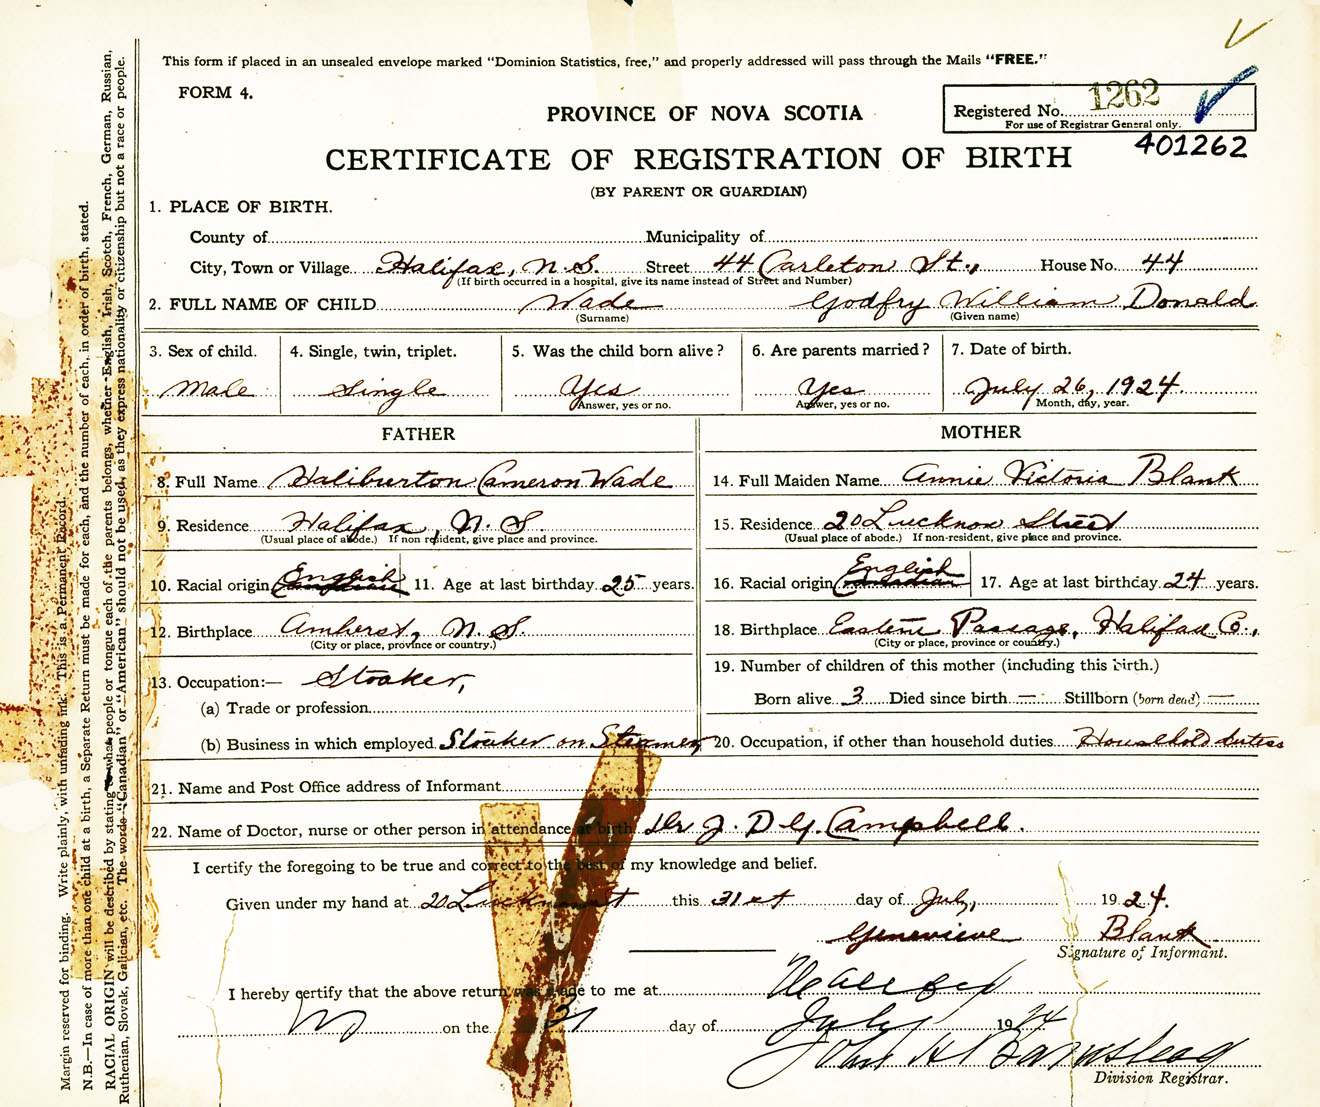 This form if placed in an unsealed envelope marked "Dominion Statistics, free," and properly addressed will pass through the Mails "FREE."
FORM 4.
PROVINCE OF NOVA SCOTIA
Registered No. 1262
For use of Registrar General only.
401262
CERTIFICATE OF REGISTRATION OF BIRTH
(BY PARENT OR GUARDIAN)
1. PLACE OF BIRTH.
County of Municipality of
City, Town or Village Halifax, N.S. Street 44 Carleton St., House No. 44
(If birth occurred in a hospital, give its name instead of Street and Number)
2. FULL NAME OF CHILD Wade Godfry William Donald
(Surname) (Given name)
3. Sex of child. 4. Single, twin, triplet. 5. Was the child born alive? 6. Are parents married? 7. Date of birth.
Male Single Yes Yes July 26, 1924
Answer, yes or no. Answer, yes or no. Month, day, year.
FATHER
8. Full Name Haliburton Cameron Wade
9. Residence Halifax, N.S.
(Usual place of abode.) If non resident, give place and province.
10. Racial origin English Canadian 11. Age at last birthday 25 years.
12. Birthplace Amherst, N.S.
(City or place, province or country.)
13. Occupation:— Stoaker,
(a) Trade or profession
(b) Business in which employed Stoaker on Steamer
MOTHER
14. Full Maiden Name Annie Victoria Blank
15. Residence 20 Lucknow Street
(Usual place of abode.) If non-resident, give place and province.
16. Racial origin English Canadian 17. Age at last birthday 24 years.
18. Birthplace Eastern Passage, Halifax Co.,
(City or place, province or country.)
19. Number of children of this mother (including this birth.)
Born alive 3 Died since birth — Stillborn (born dead) —
20. Occupation, if other than household duties Household duties
21. Name and Post Office address of Informant
22. Name of Doctor, nurse or other person in attendance at birth Dr J. D. G. Campbell.
I certify the foregoing to be true and correct to the best of my knowledge and belief.
Given under my hand at 20 Lucknow St this 31st day of July, 1924.
Genevieve Blank
Signature of Informant.
I hereby certify that the above return was made to me at Halifax
NS on the 31 day of July 1924
John H Barnstead
Division Registrar.
Margin reserved for binding. Write plainly, with unfading ink. This is a Permanent Record.
N.B.—In case of more than one child at a birth, a Separate Return must be made for each, and the number of each, in order of birth, stated.
RACIAL ORIGIN will be described by stating to what people or tongue each of the parents belongs, whether English, Irish, Scotch, French, German, Russian,
Ruthenian, Slovak, Galician, etc. The words "Canadian" or "American" should not be used, as they express nationality or citizenship but not a race or people.